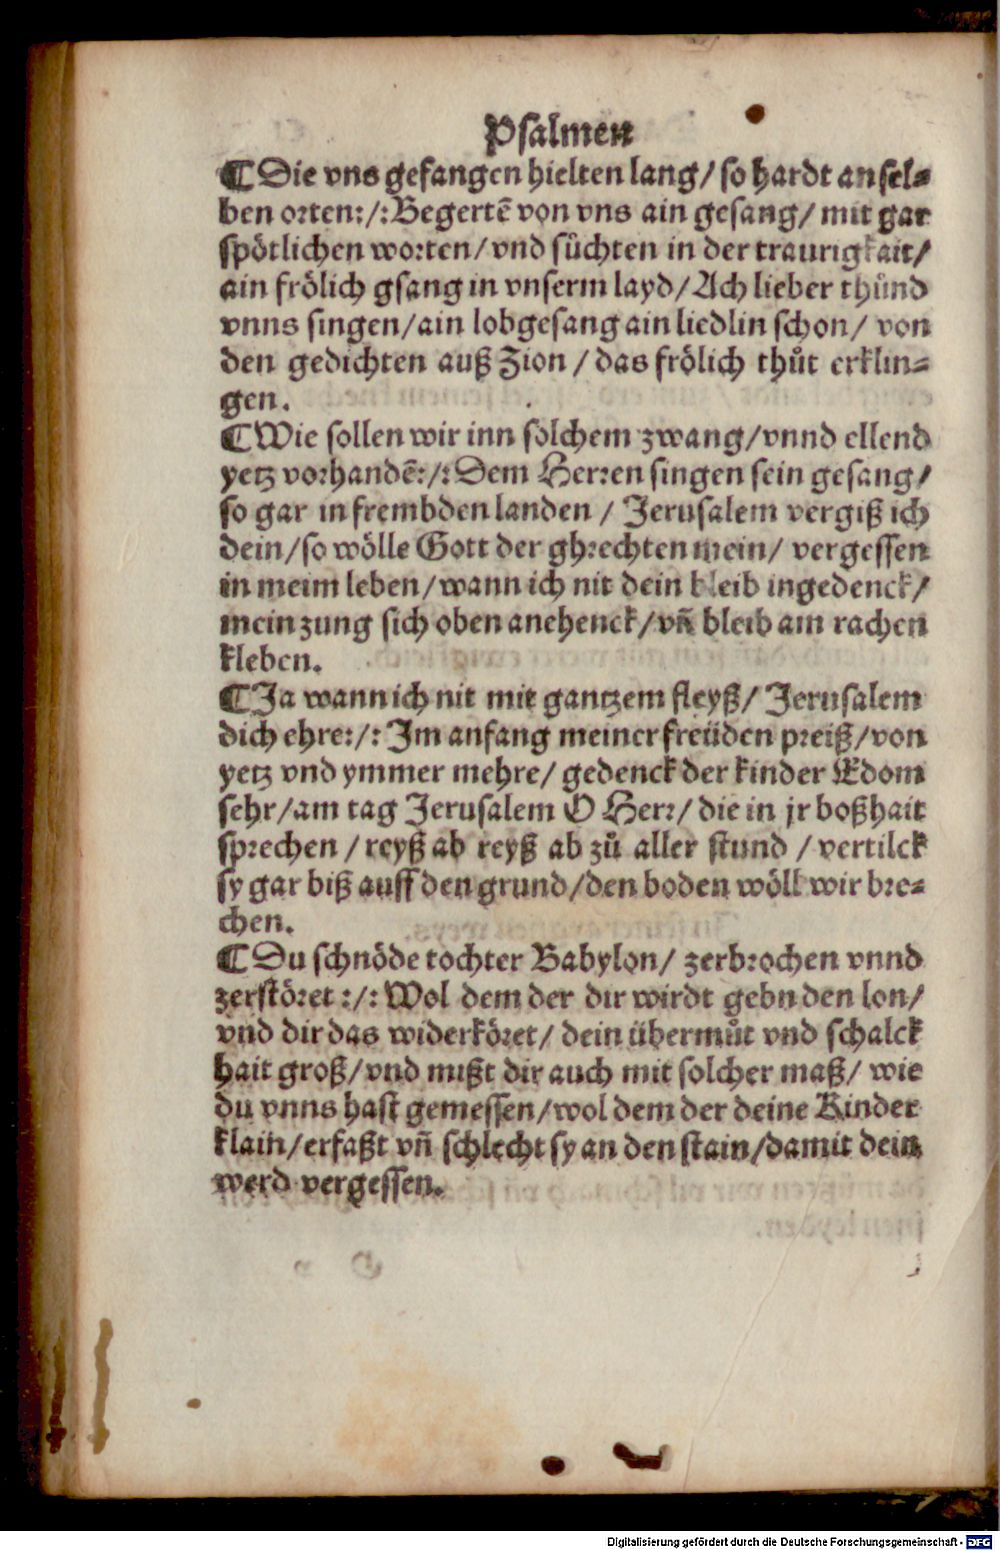 Psalmen
¶ Die vns gefangen hielten lang/ so hardt an sel⸗
ben orten:/: Begertē von vns ain gesang/ mit gar
spötlichen worten/ vnd sůchten in der traurigkait/
ain frölich gsang in vnserm layd/ Ach lieber thůnd
vnns singen/ ain lobgesang ain liedlin schon/ von
den gedichten auß Zion / das frölich thůt erklin⸗
gen.
¶ Wie sollen wir inn solchem zwang/ vnnd ellend
yetz vorhandē:/: Dem Herren singen sein gesang/
so gar in frembden landen / Jerusalem vergiß ich
dein/ so wölle Gott der ghrechten mein/ vergessen
in meim leben/ wann ich nit dein bleib ingedenck/
mein zung sich oben anehenck/ vñ bleib am rachen
kleben.
¶ Ja wann ich nit mit gantzem fleyß/ Jerusalem
dich ehre:/: Im anfang meiner freüden preiß/ von
yetz vnd ymmer mehre/ gedenck der kinder Edom
sehr/ am tag Jerusalem O Herr/ die in jr boßhait
sprechen / reyß ab reyß ab zů aller stund / vertilck
sy gar biß auff den grund/ den boden wöll wir bre⸗
chen.
¶ Du schnöde tochter Babylon/ zerbrochen vnnd
zerstöret :/: Wol dem der dir wirdt gebn den lon/
vnd dir das widerköret/ dein übermůt vnd schalck
hait groß/ vnd mißt dir auch mit solcher maß/ wie
du vnns hast gemessen/ wol dem der deine Kinder
klain/ erfaßt vñ schlecht sy an den stain/ damit dein
werd vergessen.
Digitalisierung gefördert durch die Deutsche Forschungsgemeinschaft - DFG